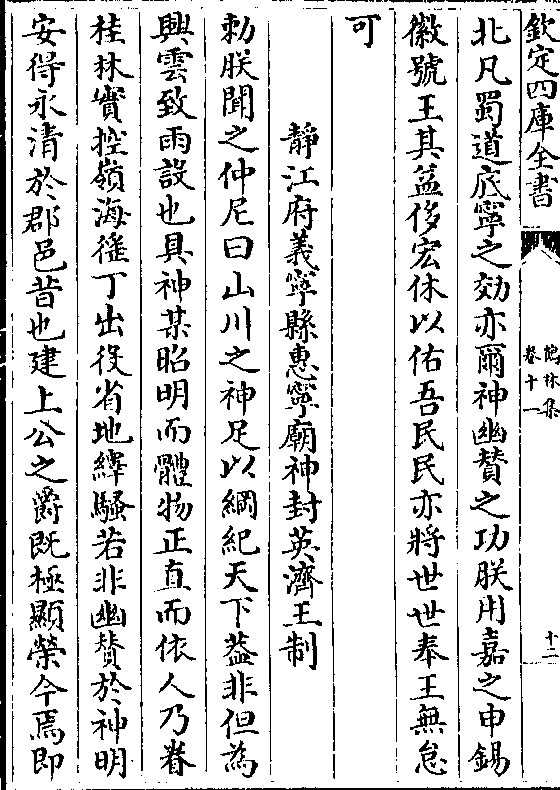 欽定四庫全書
鶴林集
卷十一
十二
北凡蜀道底寧之効亦爾神幽賛之功朕用嘉之申錫
徽號王其益侈宏休以佑吾民民亦將世世奉王無怠
可
靜江府義寧縣惠寧廟神封英濟王制
勅朕聞之仲尼曰山川之神足以綱紀天下葢非但為
興雲致雨設也具神某昭明而體物正直而依人乃眷
桂林實控嶺海徭丁出役省地繹騷若非幽賛於神明
安得永清於郡邑昔也建上公之爵既極顯榮今焉即